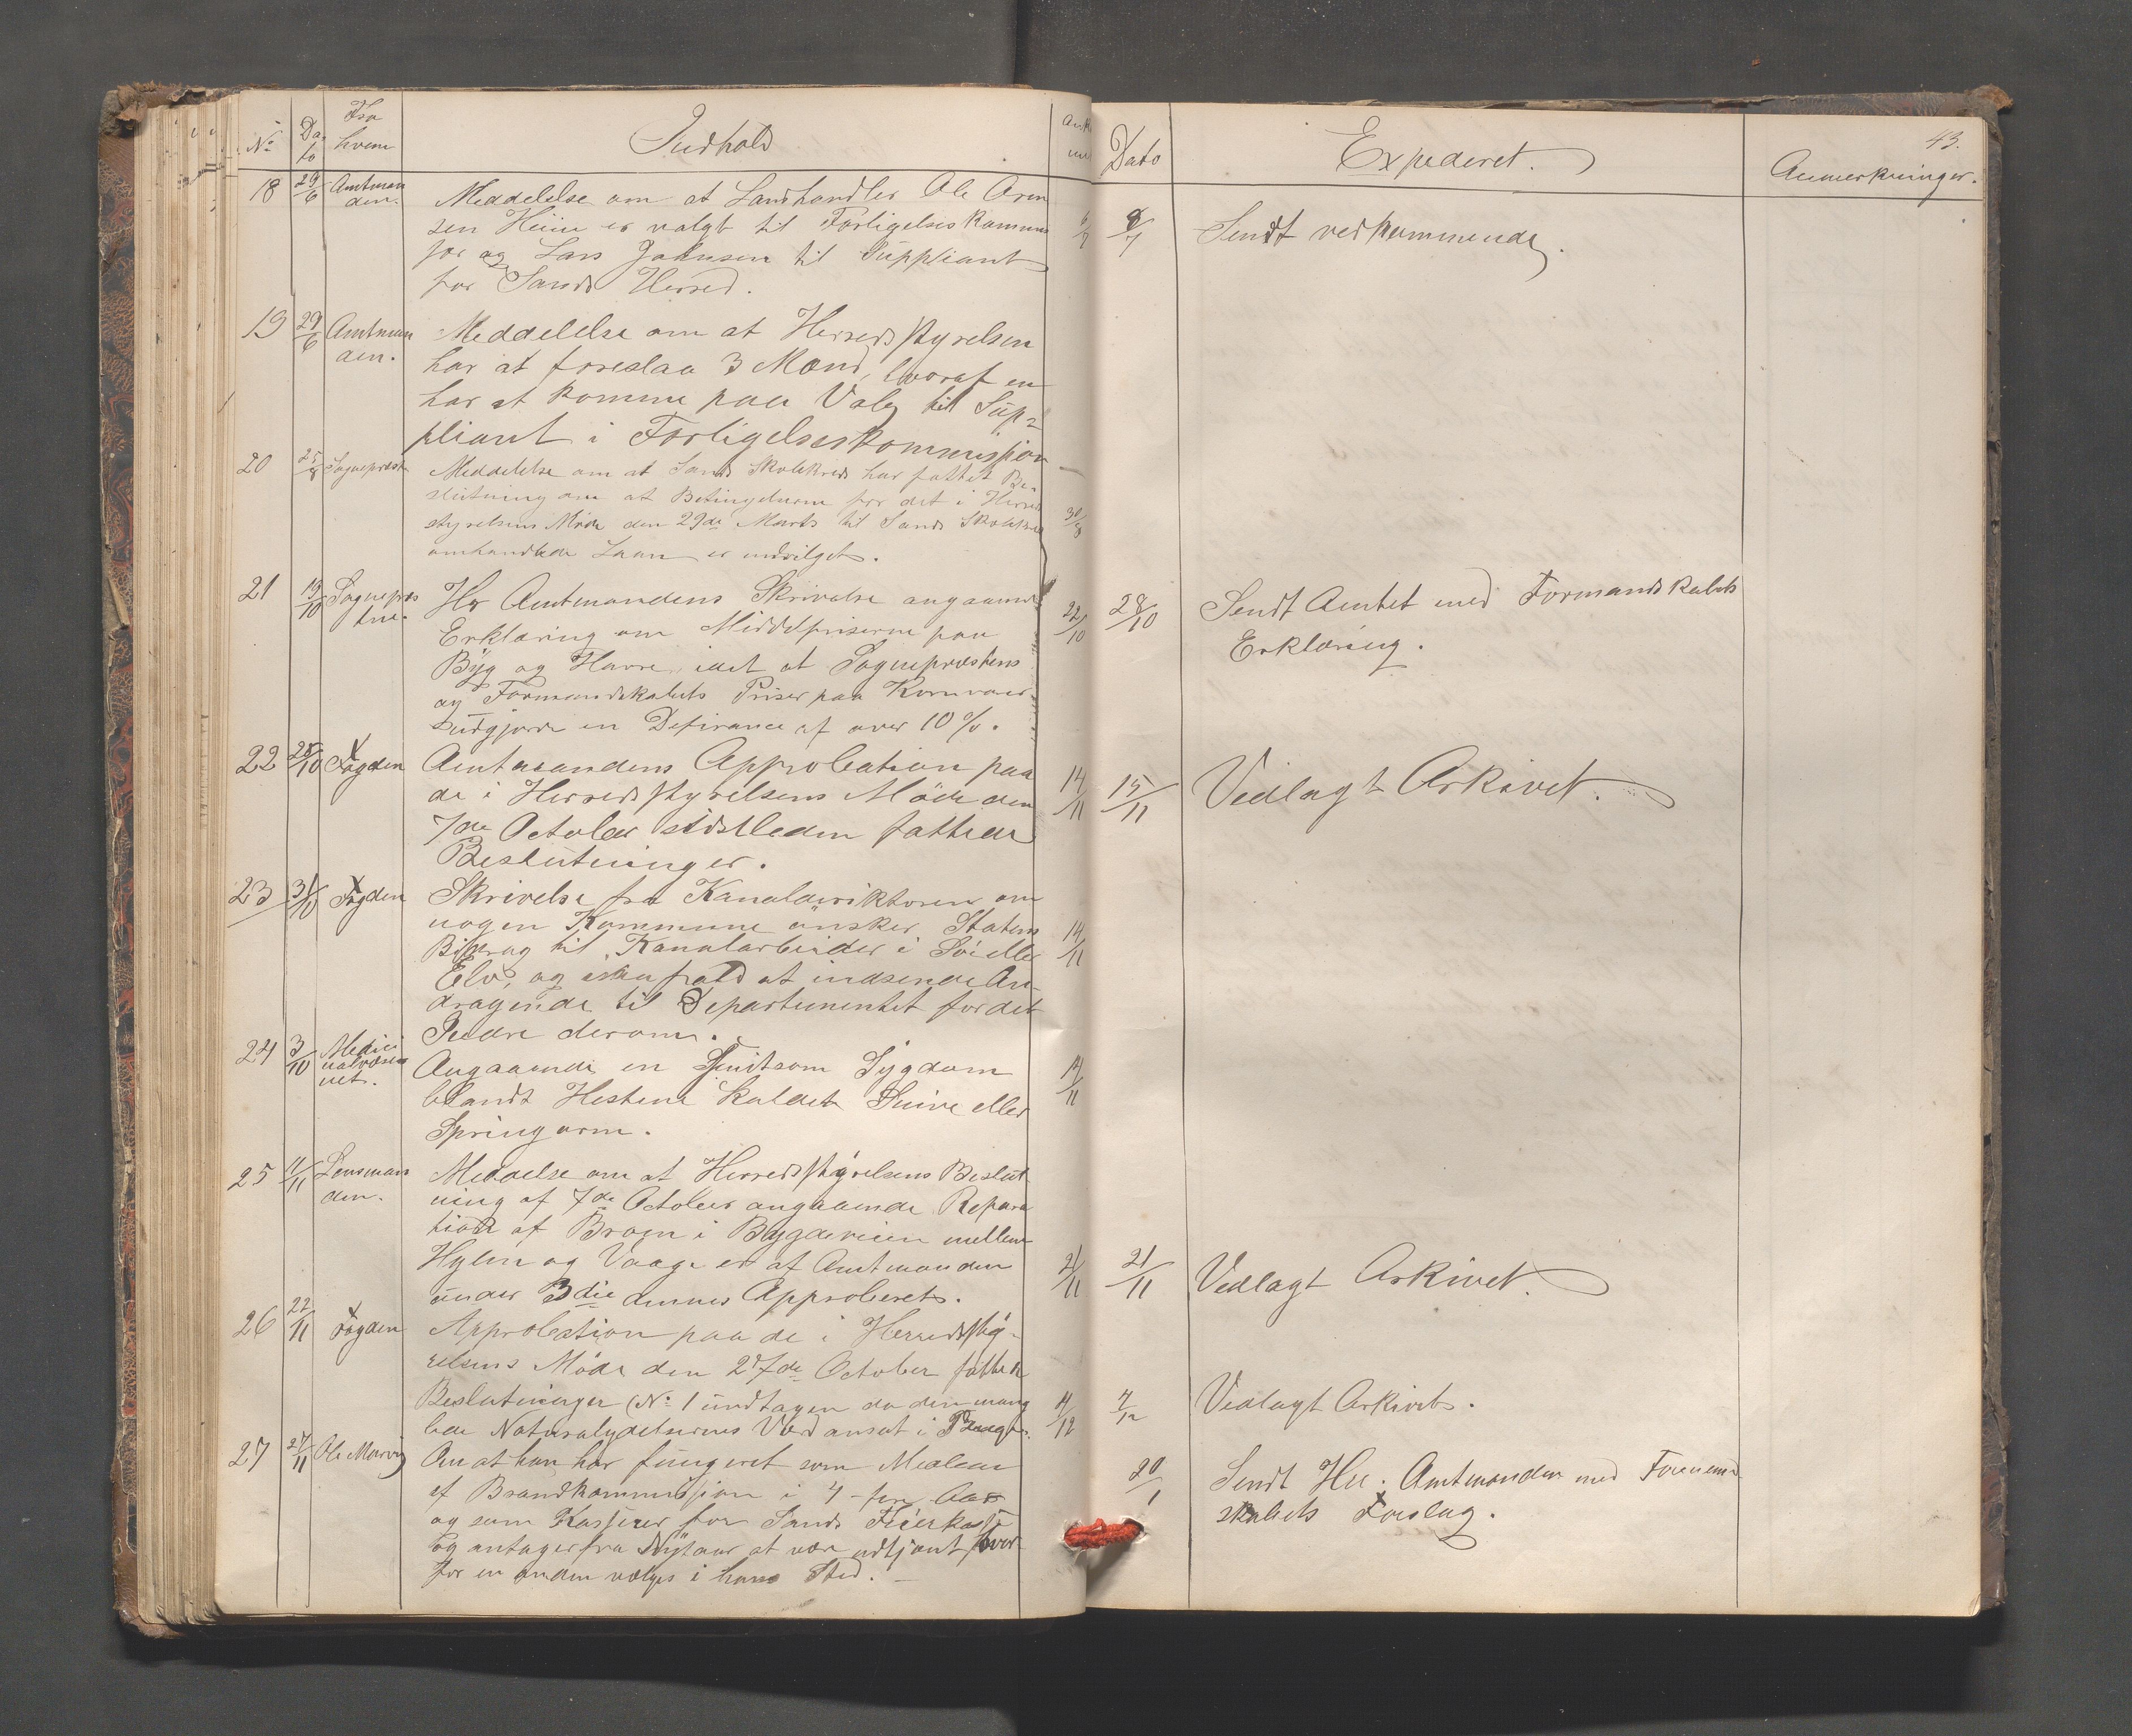 No Dato Fra hvem Indhold Ank
Dato Expederet. Anmerkninger.
43.
18 29/6 Amtmanden. Meddelelse om at Landhandler Ole Aren
sen Heim er valgt til Forligelseskommis 6/7 8/7 Sendt vedkommende.
jær og Lars Johnsen til Suppliant
for Sands Herred.
19 29/6 Amtmanden. Meddelelse om at Herredsstyrelsen
har at foreslaa 3 Mænd, hvoraf en
har at komme paa Valg til Sup-
pliant i Forligelseskommission
20 25/8 Sognepræst Meddelelse om at Sands Skolekreds har fattet Be-
slutning om at Betingelserne for det i Herreds
styrelsens Møde den 29de Marts til Sands Skolekreds 30/8
omhandlede Laan er indvilget.
21 19/10 Sognepræsten. Hr Amtmandens Skrivelse angaaende 22/10 28/10 Sendt Amtet med Formandskabets
Erklæring om Middelpriserne paa Erklæring.
Byg og Havre, idet at Sognepræstens
og Formandskabets Priser paa Kornvarer
udgjorde en Defirance af over 10%.
22 28/10 Fogden Amtmandens Approbation paa 14/11 15/11 Vedlagt Arkivet.
de i Herredsstyrelsens Möde den
7de October sidstleden fattede
Beslutninger.
23 31/10 Fogden Skrivelse fra Kanaldirektoren om
nogen Kommune ønsker Statens 14/11
Bidrag til Kanalarbeider i Sø eller
Elv, og i saa fald at indsende An-
dragende til Departementet for det
Indre derom.
24 3/10 Medicinalvæsenet. Angaaende en Smitsom Sygdom 14/11
blandt Hestene kaldet Snive eller
Springorm.
25 11/11 Lensmanden. Meddelse om at Herredsstyrelsens Beslut
ning af 7de October angaaende Repara
tion af Broen i Bygdeveien mellem
Hylen og Vaage er af Amtmanden 21/11 21/11 Vedlagt Arkivet.
under 3die dennes Approberet.
26 22/11 Fogden Approbation paa de i Herredssty-
relsens Möde den 27de October fattede
Beslutninger (No 1 undtagen da den mang 4/12 4/12 Vedlagt Arkivet.
lede Naturalydelsernes Værd ansat i Penge.
27 27/11 Ole Marvig Om at han har fungeret som Medlem 20/1 Sendt Hr. Amtmanden med Formand
af Brandkommission i 4-fire Aar skabets Forslag.
og som Kasserer for Sands Feierkasse
og antager fra Nytaar at være udtjent hvor-
for en anden vælges i hans Sted. —